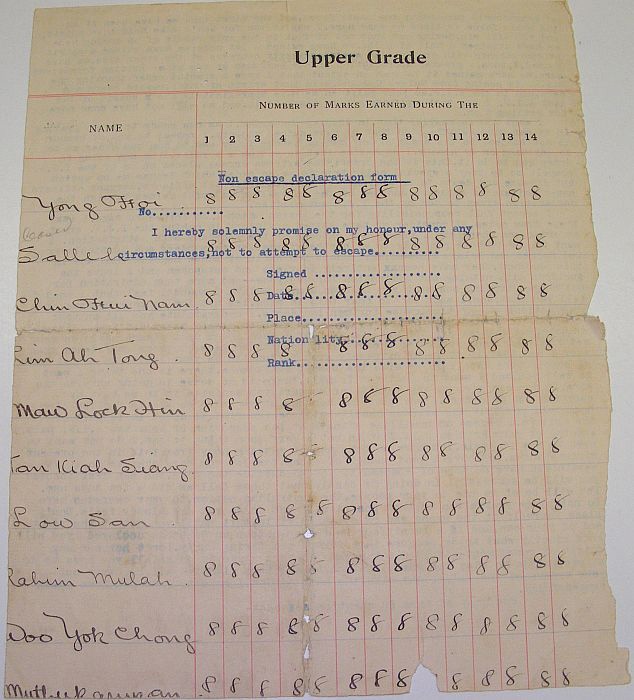 Upper Grade
NAME
NUMBER OF MARKS EARNED DURING THE
1 2 3 4 5 6 7 8 9 10 11 12 13 14
Non escape declaration form
Yong Hoi 8 8 8 8 8 8 8 8 8 8 8 8 8 8
No...........
I hereby solemnly promise on my honour,under any
Salleh 8 8 8 8 8 8 8 8 8 8 8 8 8 8
circumstances,not to attempt to escape..........
Signed ..................
Chin Hui Nam 8 8 8 8 8 8 8 8 8 8 8 8 8
Date.....................
Place....................
Lim Ah Tong 8 8 8 8 8 8 8 8 8 8 8 8 8
Nation lity..............
Rank.....................
Maw Lock Hin 8 8 8 8 8 8 8 8 8 8 8 8 8
Tan Kiah Siang 8 8 8 8 8 8 8 8 8 8 8 8 8
Low San 8 8 8 8 8 8 8 8 8 8 8 8 8 8
Rahim Mulah 8 8 8 8 8 8 8 8 8 8 8 8 8 8
Woo Yok Chong 8 8 8 8 8 8 8 8 8 8 8 8 8 8
8 8 8 8 8 8 8 8 8 8 8 8 8